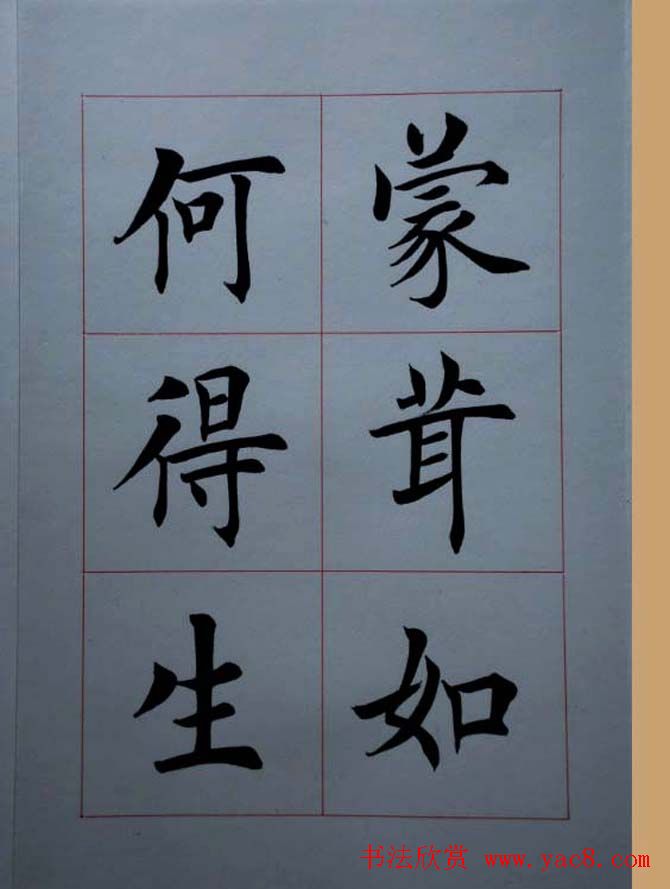 蒙茸如
何得生
书法欣赏 www.yac8.com